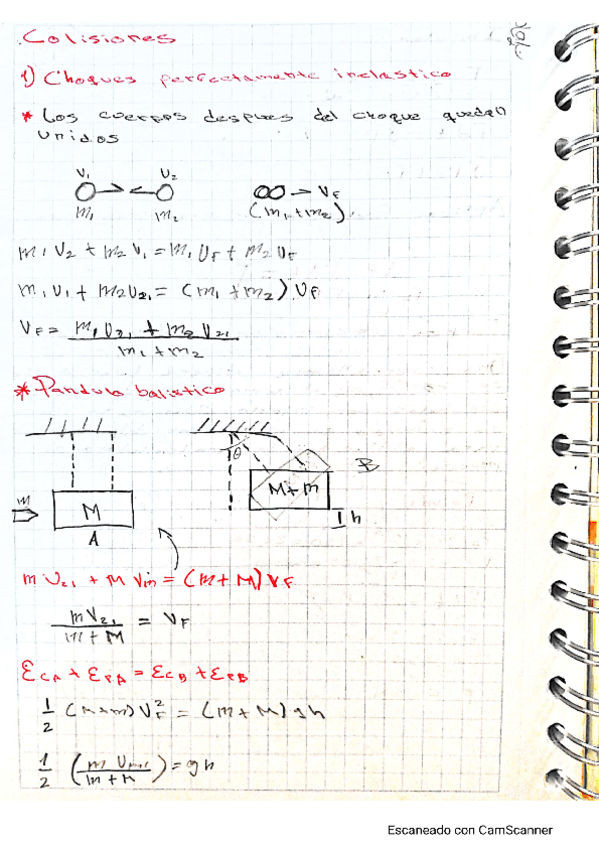 Colisiones
1) Choques perfectamente inelastico
* Los cuerpos despues del choque quedan
unidos
V₁ U₂
m₁ m₂
→ VF
(m₁+m₂)
m₁ U₂ + m₂ V₁ = m₁ UF + m₂ UF
m₁ U₁ + m₂U₂₁ = (m₁ + m₂) UF
VF = m₁ U₂₁ + m₂ U₂₁
m₁ + m₂
* Pandulo balistico
θ B
m M M+m
h
A
m U₂₁ + M Vin = (m+M) VF
mV₂₁ = VF
m+M
ECA + EPA = ECB + EPB
1/2 (M+m) VF² = (m+M) gh
1/2 (m / m+M) = gh
Escaneado con CamScanner